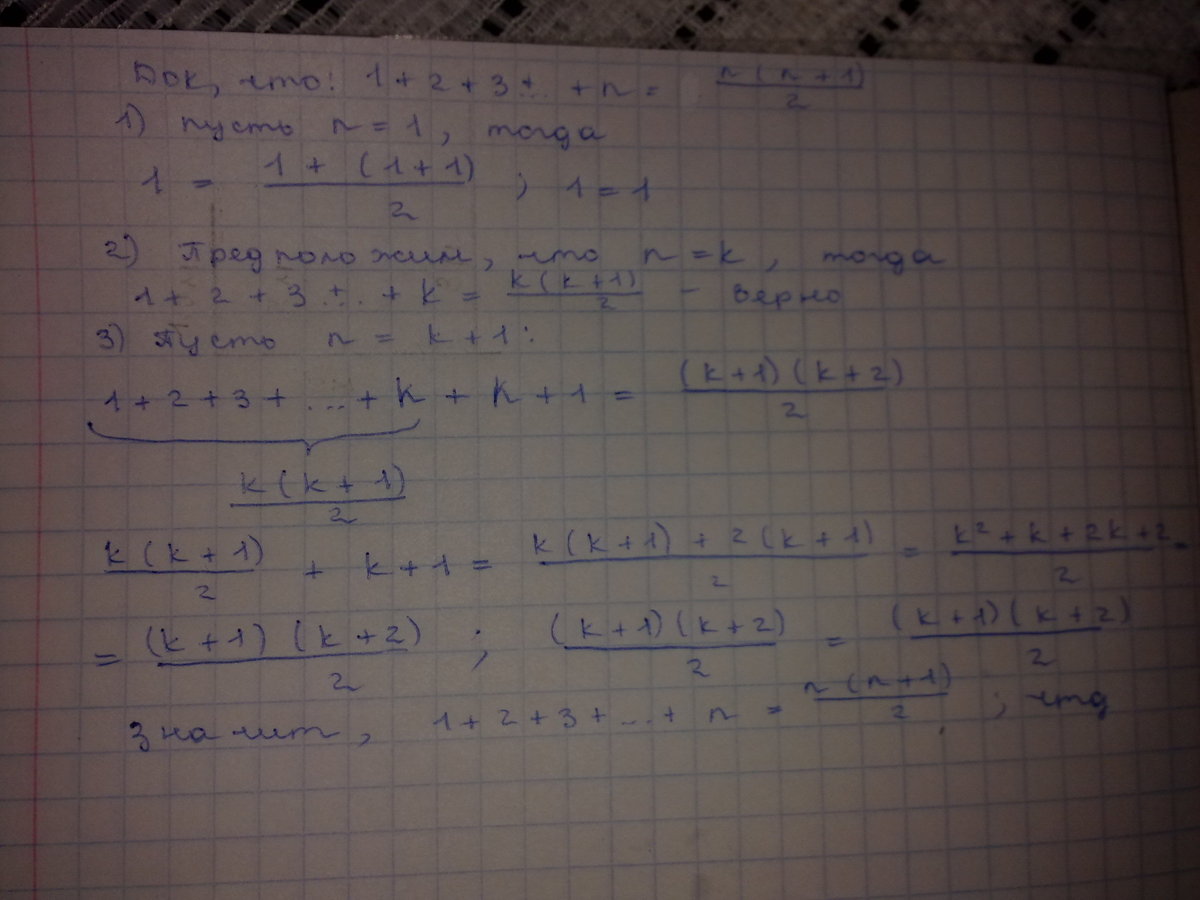 Док, что: 1 + 2 + 3 + ... + n = n(n+1)/2
1) пусть n = 1, тогда
1 = 1 + (1+1)/2 ; 1 = 1
2) Предположим, что n = k, тогда
1 + 2 + 3 + ... + k = k(k+1)/2 - верно
3) Пусть n = k + 1:
1 + 2 + 3 + ... + k + k + 1 = (k+1)(k+2)/2
k(k+1)/2
k(k+1)/2 + k+1 = k(k+1) + 2(k+1)/2 = k² + k + 2k + 2/2 =
= (k+1)(k+2)/2 ; (k+1)(k+2)/2 = (k+1)(k+2)/2
Значит, 1 + 2 + 3 + ... + n = n(n+1)/2 ; чтд